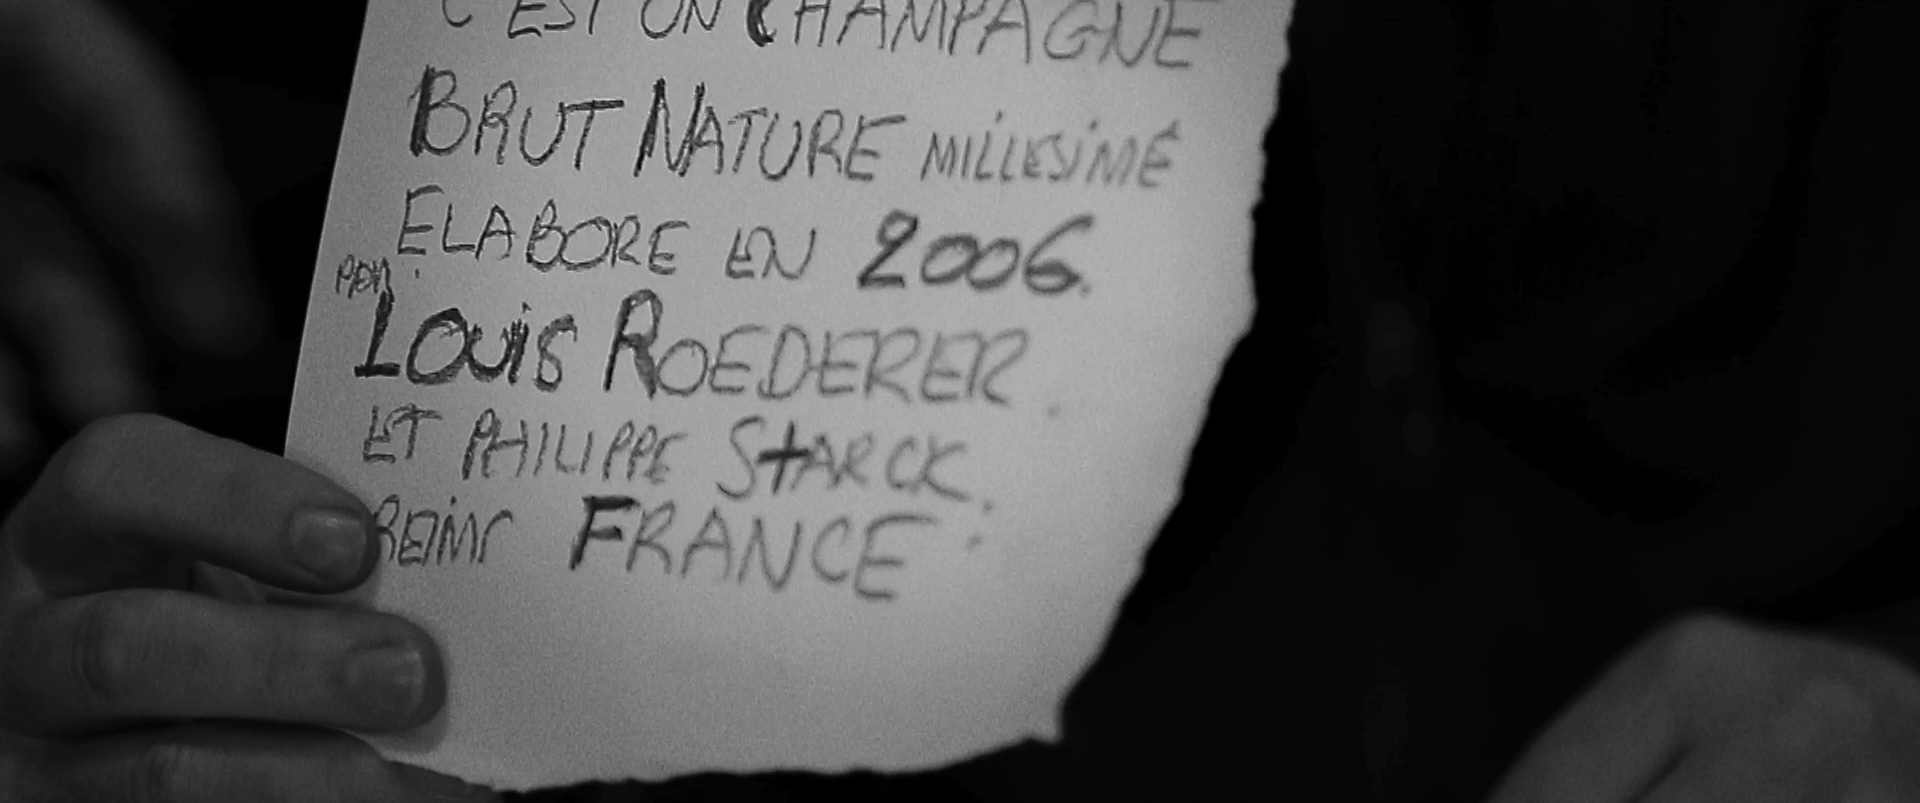 C'EST UN CHAMPAGNE
BRUT NATURE MILLESIMÉ
ELABORE EN 2006.
PAR
LOUIS ROEDERER.
ET PHILIPPE STARCK.
REIMS FRANCE.